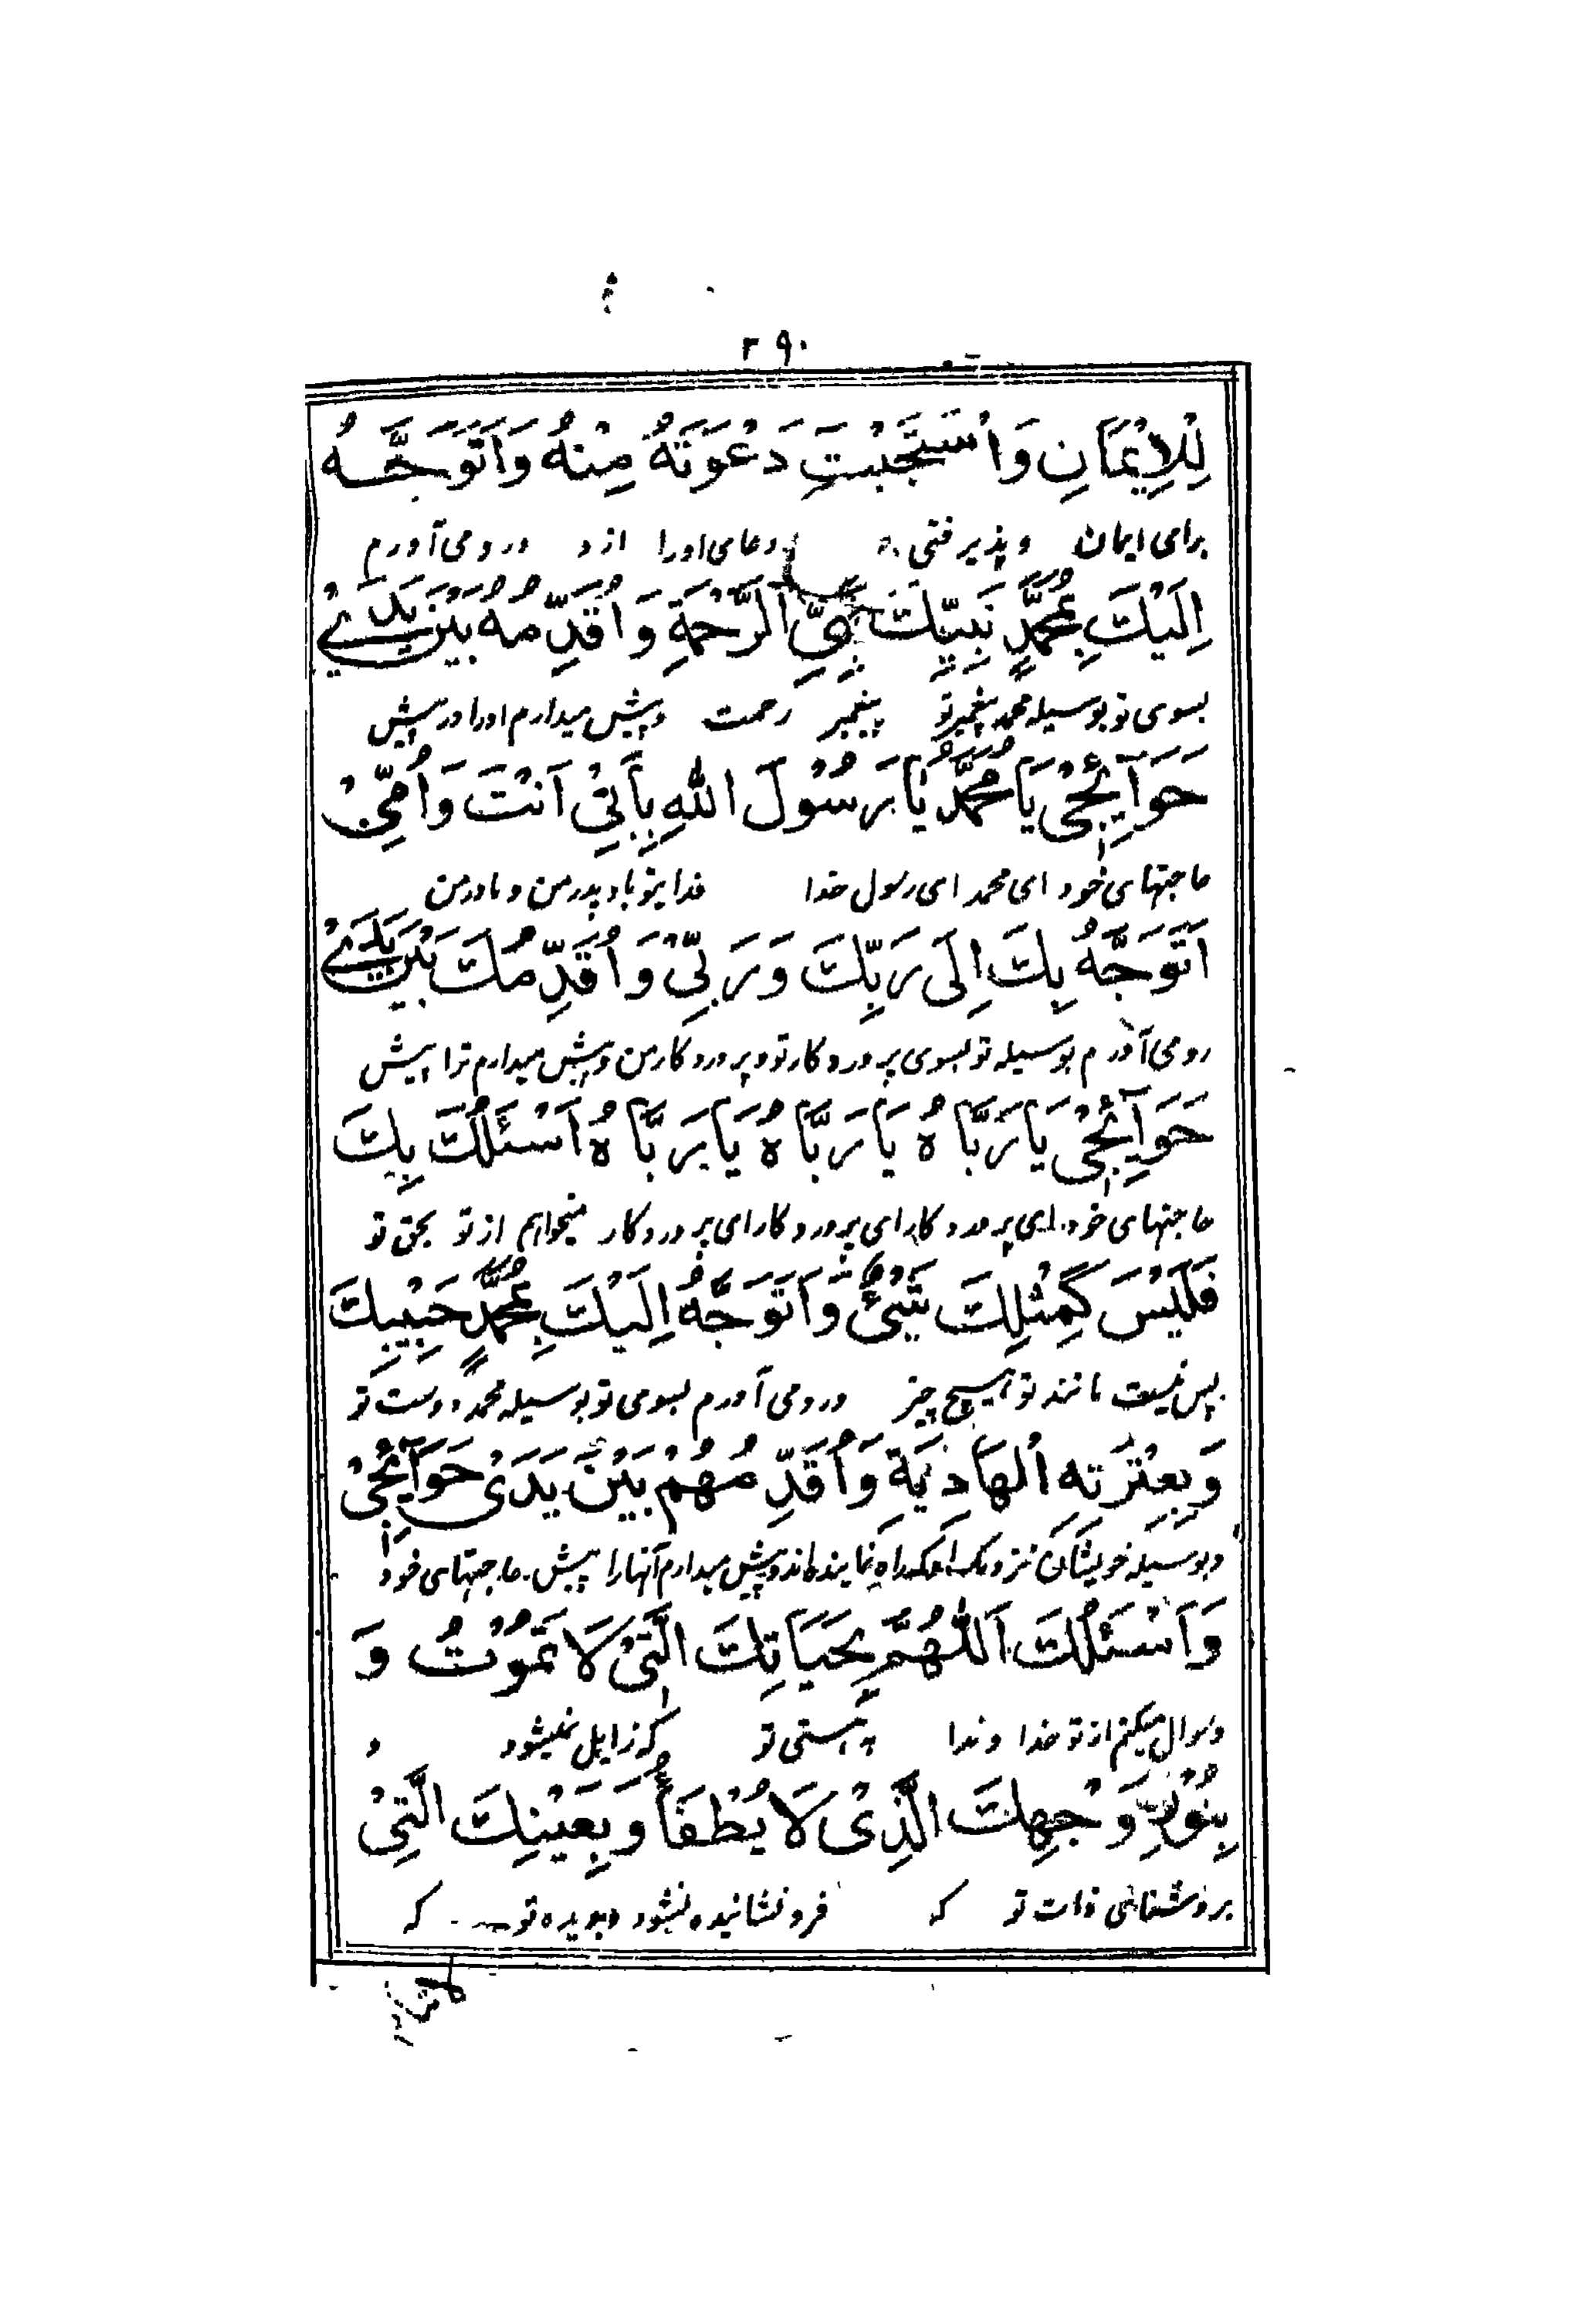 ۲۹۰
لِلْاِيْمَانِ وَاسْتَجَبْتَ دَعْوَتَهُ مِنْهُ وَاَتَوَجَّهُ
برای ایمان و پذیرفتی دعای اورا ازو و رو می آورم
اِلَيْكَ بِمُحَمَّدٍ نَبِيِّكَ نَبِيِّ الرَّحْمَةِ وَاُقَدِّمُهُ بَيْنَ يَدَيْ
بسوی تو بوسیله محمد پیغمبر تو پیغمبر رحمت و پیش میدارم اورا در پیش
حَوَآئِجِيْ يَا مُحَمَّدُ يَا رَسُوْلَ اللهِ بِاَبِيْ اَنْتَ وَاُمِّيْ
حاجتهای خود ای محمد ای رسول خدا فدایتو باد پدر من و مادر من
اَتَوَجَّهُ بِكَ اِلَى رَبِّكَ وَرَبِّيْ وَاُقَدِّمُكَ بَيْنَ يَدَيْ
رو می آورم بوسیله تو بسوی پروردکار تو و پروردکار من و پیش میدارم ترا پیش
حَوَآئِجِيْ يَا رَبَّاهُ يَا رَبَّاهُ يَا رَبَّاهُ اَسْئَلُكَ بِكَ
حاجتهای خود ای پروردکار ای پروردکار ای پروردکار میخواهم از تو بحق تو
فَلَيْسَ كَمِثْلِكَ شَيْئٌ وَاَتَوَجَّهُ اِلَيْكَ بِمُحَمَّدٍ حَبِيْبِكَ
پس نیست مانند تو هیچ چیز و رو می آورم بسوی تو بوسیله محمد دوست تو
وَبِعِتْرَتِهِ الْهَادِيَةِ وَاُقَدِّمُهُمْ بَيْنَ يَدَيْ حَوَآئِجِيْ
و بوسیله خویشان نزدیک او که راه نماینده اند و پیش میدارم آنها را پیش حاجتهای خود
وَاَسْئَلُكَ اَللّٰهُمَّ بِحَيَاتِكَ الَّتِيْ لَا تَمُوْتُ وَ
و سوال میکنم از تو خدا وندا بهستی تو که زایل نمیشود و
بِنُوْرِ وَجْهِكَ الَّذِيْ لَا يُطْفَأُ وَبِعَيْنِكَ الَّتِيْ
بروشنائی ذات تو که فرو نشانیده نشود و بدیده تو که